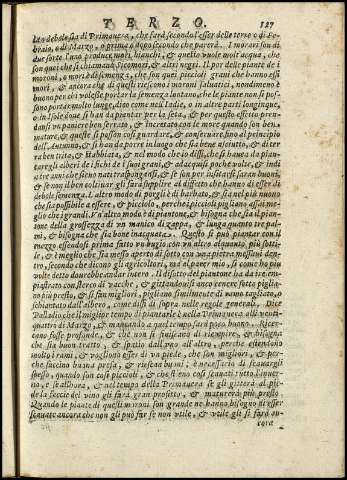 TERZO. 127
lato debole sia di Primauera, che sarà secondo l'esser delle terre o di Febraio,
o di Marzo, o prima o dopo secondo che parerà. I morari son di
due sorte l'uno produce mori, bianchi, & questo vuole molt'acqua, che
son quei che si chiamano Sicomori, & altri negri. Il por delle piante de i
moroni, o mori è di semenza, che son quei piccioli grani che hanno essi
mori, & ancora che di questi riescono i moroni saluatici, nondimeno è
buono per chi volesse portar la semenza lontano, che le piante non si possono
portar molto lunge, dico come nell'Indie, o in altre parti longinque,
o in Isole doue si han da piantar per la seta, & per questo effetto prendansi
un paniere ben serrato, & incretato con le more quando son ben mature,
& quelle si posson così guardare, & conseruare fino al principio
dell'Autunno, & si han da porre in luogo che sia bene asciutto, & di terra
ben trita, & stabbiata, & nel modo ch'io dissi, che si hauea da piantare
gli alberi de i fichi de i suoi grani, & adacquisi poche volte, & indi
a tre anni che sieno nati traspongansi, & se son per insitarsi saran buoni,
& se non il ben coltiuar gli farà supplire al difetto che hanno di esser di
debole semenza. L'altro modo di porgli è di barbato, & sia nel più nuouo
che sia possibile a essere, & picciolo, perche i piccioli pigliano assai meglio
che i grandi. Vn'altro modo è di piantone, & bisogna che sia il piantone
della grossezza di vn manico di zappa, & lungo quanto tre palmi,
& bisogna che sia bene inacquata. Questo si può piantar con il
mezzo essendosi prima fatto vn bugio con vn'altro alquanto più sottile,
& è meglio che sia messo aperto di sotto con vna pietra messaui dentro,
secondo che dicono gli agricoltori, ma al parer mio, sì come ho più
volte detto dourebbe andar intero. Il disotto del piantone ha da ire
impiastrato con sterco di vacche, & gittandoui anco cenere sotto pigliano
più presto, & si fan migliori, pigliano similmente di ramo tagliato, o
schiantato dall'albero, come dissi di sopra nelle regole generali. Dice
Palladio che il meglior tempo di piantarle è nella Primauera alli ventiquattro
di Marzo, & mancando a quel tempo sarà poco buono. Ricercano
fosse profonde, & che non si finiscano di riempire, & bisogna
che sia buon tratto, & spatio dall'vno all'altro, perche estendono
molto i rami, & vogliono esser di vn piede, che son migliori, & perche
succino buona presa, & rieschino buoni, è necessario di scauargli
spesso, quando son così piccioli, & che stieno così scauati tutto l'inuerno,
e se all'hora, & nel tempo della Primauera se gli gitterà al piede
la feccie del vino gli farà gran profitto, & matureran più presto.
Quando le piante di questi moroni son grande ne hanno bisogno di esser
scauate ancora che non gli può far se non vtile, & vtile gli si farà ancora